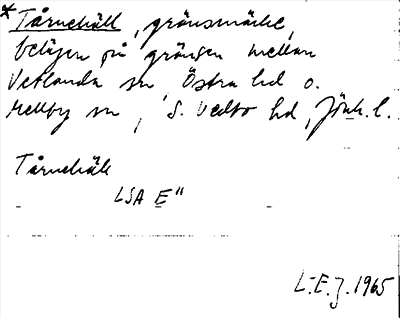 *Tårnehäll, gränsmärke,
belägen på gränsen mellan
Vetlanda sn, Östra hd o.
Mellby sn, S. Vedbo hd, Jönk. l.
Tårnehäll
LSA E"
L-E.J. 1965